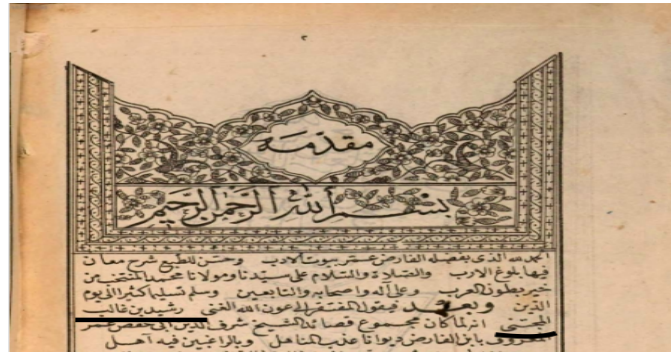 ٢
مقدّمة
بسم الله الرحمن الرحيم
الحمد لله الذي بفضله الفارض عمر بيوت الادب وحسن للطبع شرح معان
فيها بلوغ الارب والصلاة والسلام على سيدنا ومولانا محمد المنتخب من
خير بطون العرب وعلى آله واصحابه والتابعين وسلم تسليما كثيرا الى يوم
الدين وبعد فيقول المفتقر الى عون الله الغني رشيد بن غالب
انه لما كان مجموع قصائد الشيخ شرف الدين ابي حفص عمر
المعروف بابن الفارض ديوانا عذب المناهل وبالراغبين فيه آهل